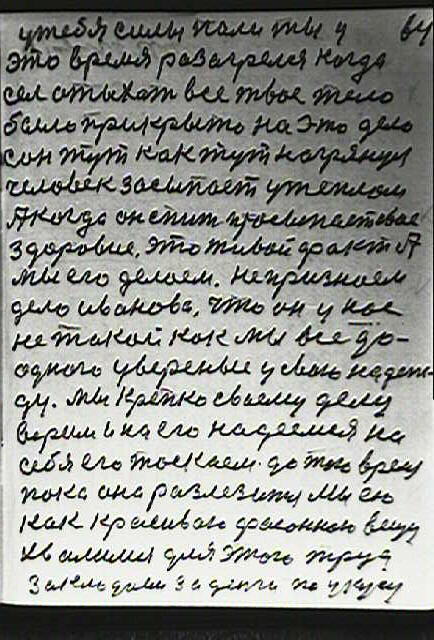 у тебя силы пали ты у 64
это время разагрелся когда
сел отыхат все твое тело
было прикрыто на это дело
сон тут как тут нагрянул
человек засыпает утеплом
А когда он спит просыпаетсвае
здоровие. Это живой факт А
мы его делаем. непризнаем
дело иванова, что он у нас
не такой как мы все до-
одного увереные у свою надеж-
ду. мы крепко своему делу
верим и на его надеемся на
себя его тоскаем. до того время
пока она разлезится мы ею
как красивою фасонною вещу
хвалимся для этого труд
закладали за денги по укусу